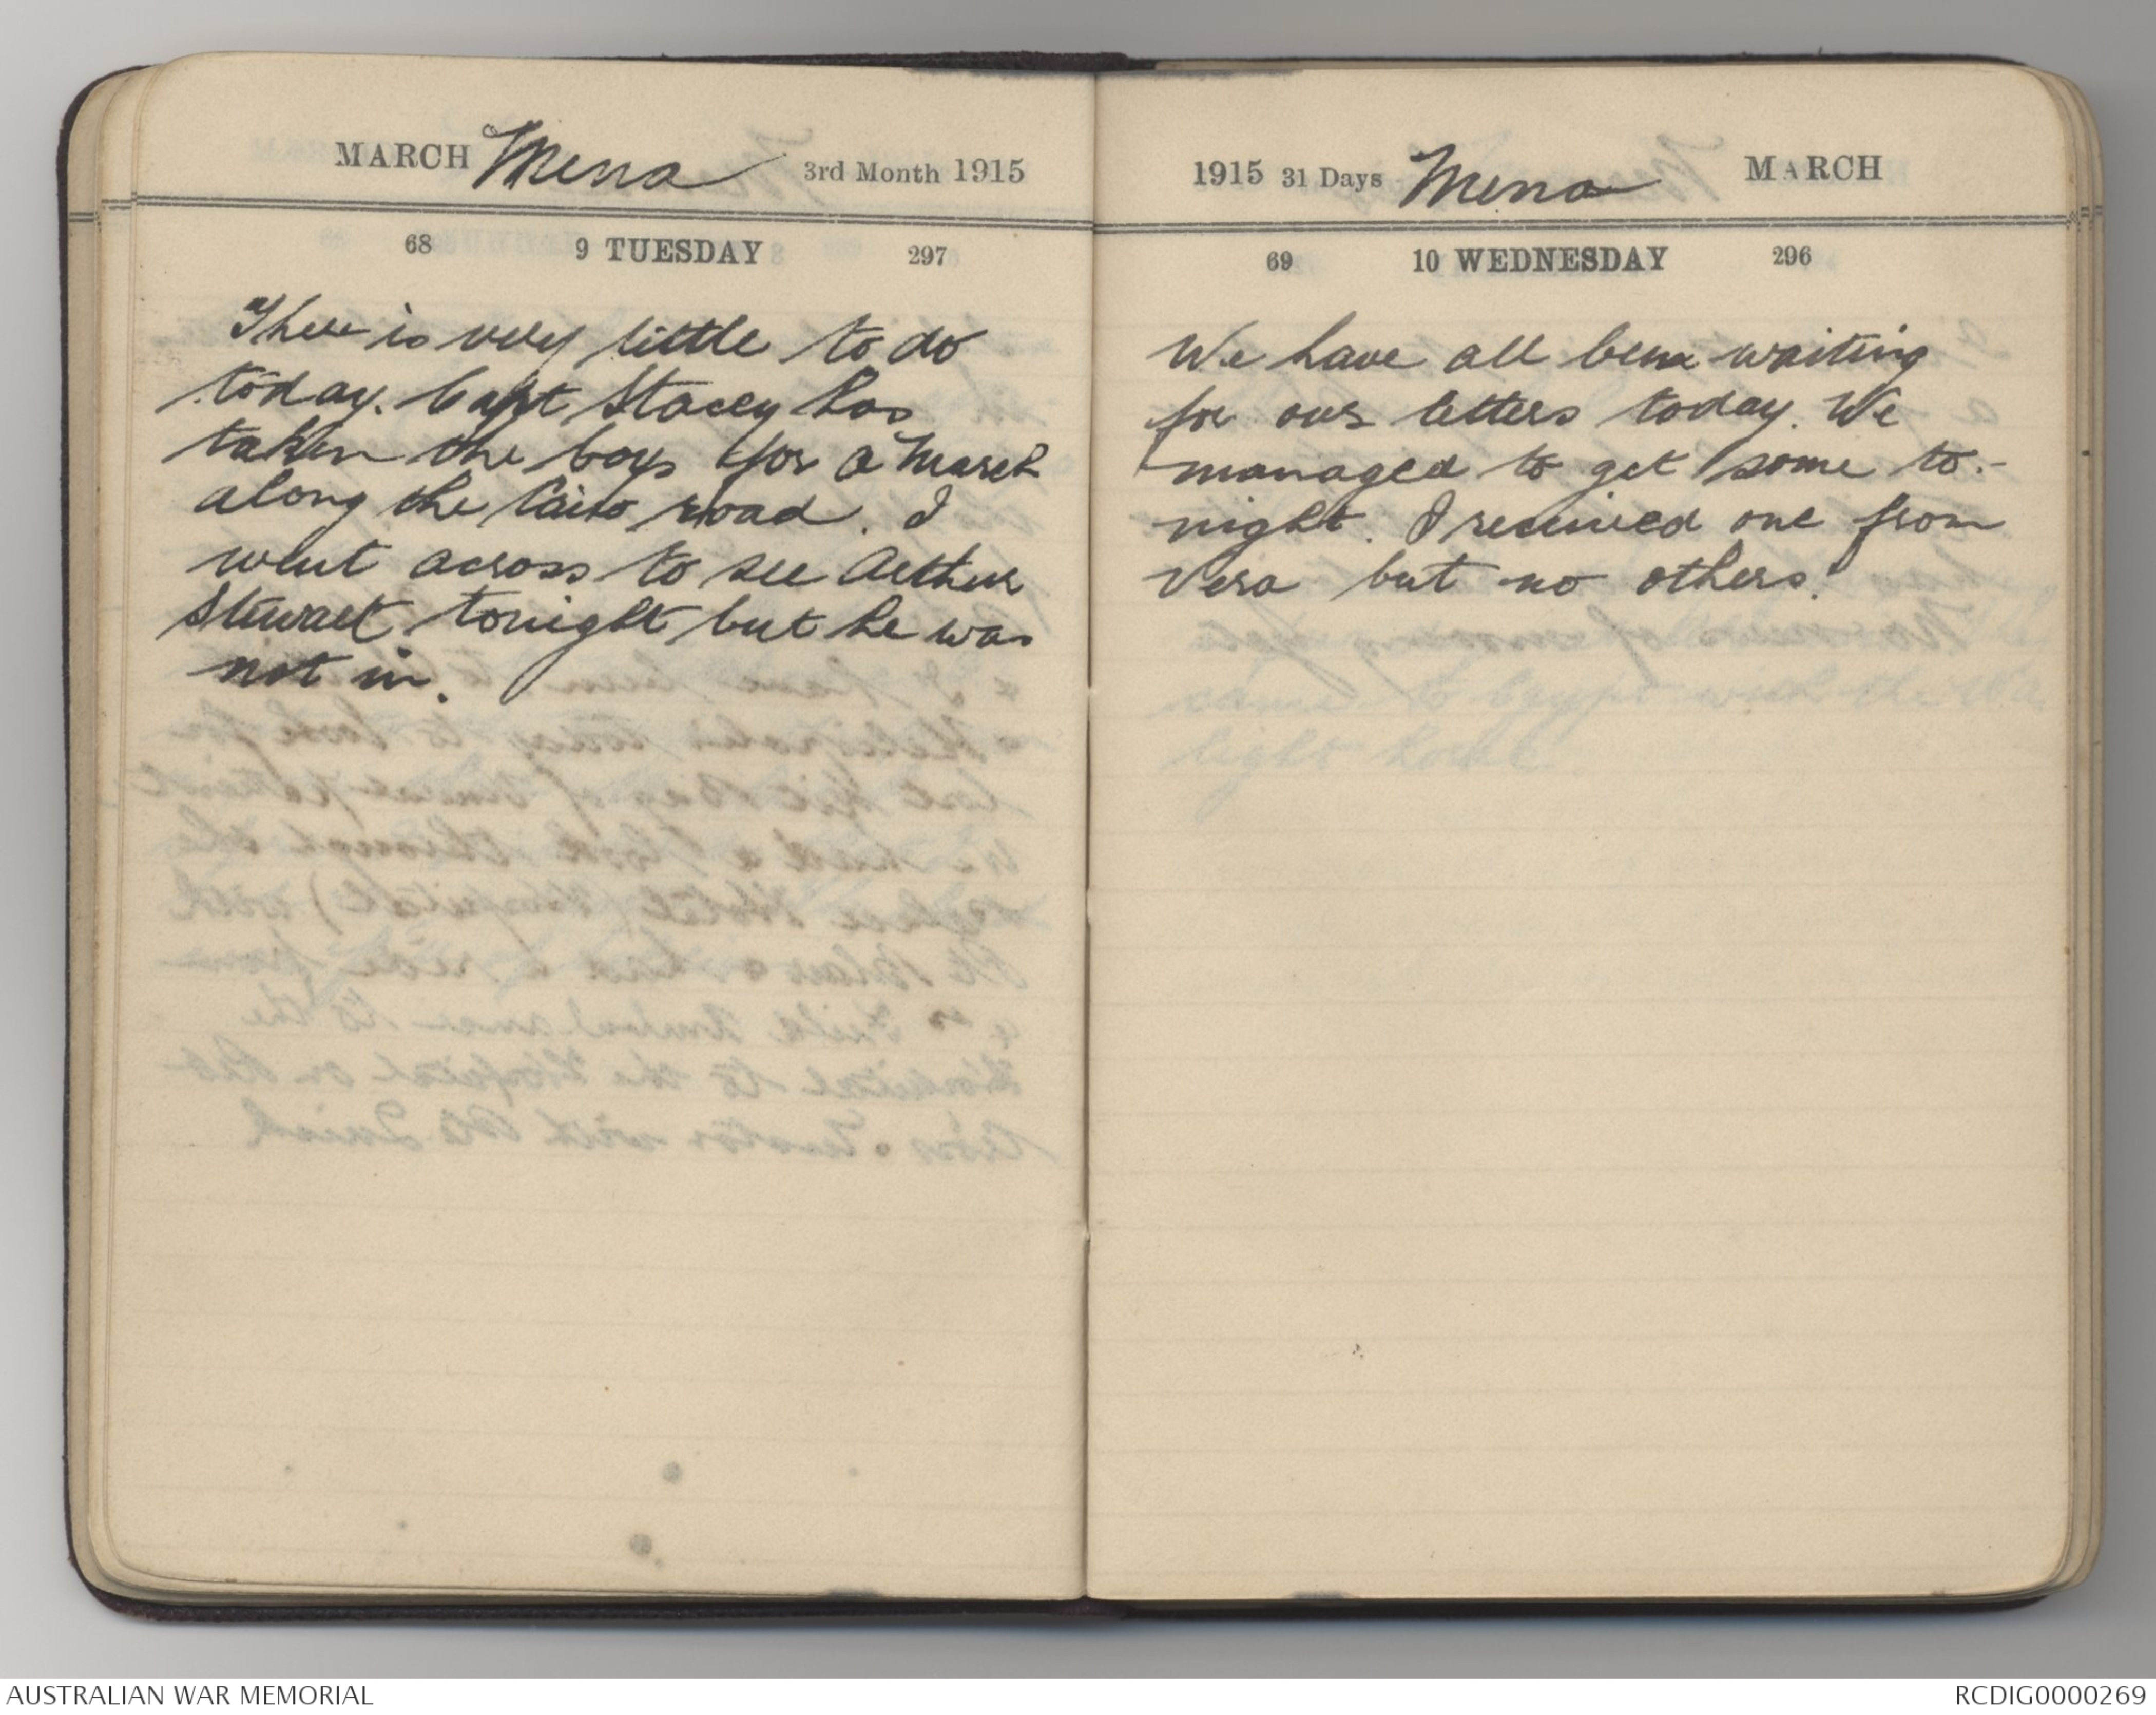 MARCH Mena 3rd Month 1915
68 9 TUESDAY 297
There is very little to do
today. Capt Stacey has
taken the boys for a march
along the Cairo road. I
went across to see Arthur
Stewart tonight but he was
not in.
1915 31 Days Mena MARCH
69 10 WEDNESDAY 296
We have all been waiting
for our letters today. We
managed to get some to-
night. I received one from
Vera but no others.
AUSTRALIAN WAR MEMORIAL
RCDIG0000269